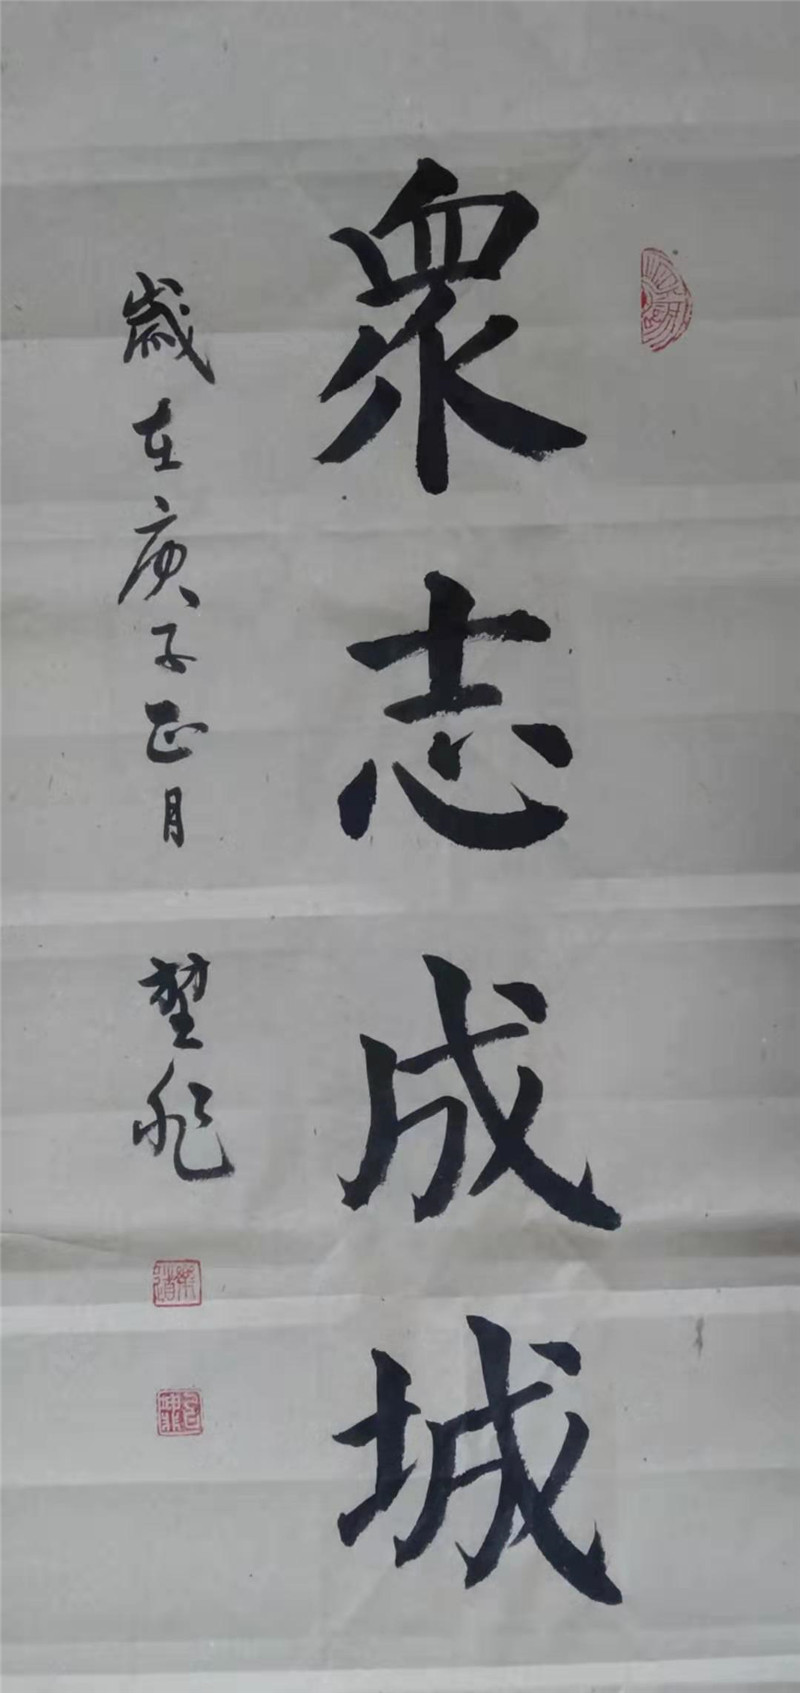 衆志成城
歲在庚子正月